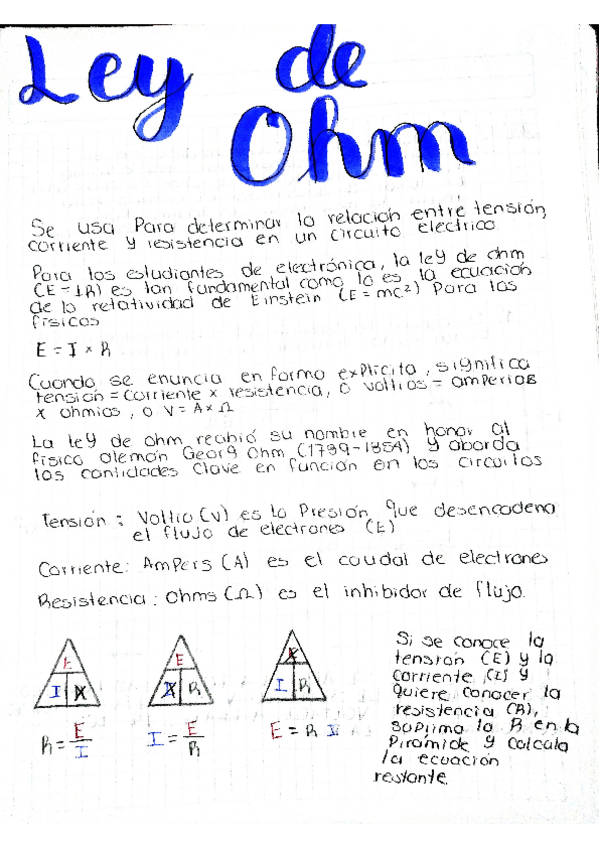 Ley de
Ohm
Se usa Para determinar la relación entre tensión,
corriente y resistencia en un circuito electrico
Para los estudiantes de electrónica, la ley de ohm
(E = IR) es tan fundamental como lo es la ecuación
de la relatividad de Einstein (E = mc²) Para los
físicos
E = I × R
Cuando se enuncia en forma explicita, significa
tensión = corriente × resistencia, o voltios = amperios
x ohmios, o V = A × Ω
La ley de ohm recibió su nombre en honor al
físico alemán Georg Ohm (1789-1854) y aborda
las cantidades clave en función en los circuitos
Tensión : Voltio (v) es la Presión que desencadena
el flujo de electrones (E)
Corriente: Ampers (A) es el caudal de electrones
Resistencia: Ohms (Ω) es el inhibidor de flujo.
E E R
I R I R I R
R = E/I I = E/R E = R I
Si se conoce la
tensión (E) y la
corriente (I) y
quiere conocer la
resistencia (R),
suprima la R en la
Pirámide y calcula
la ecuación
restante.